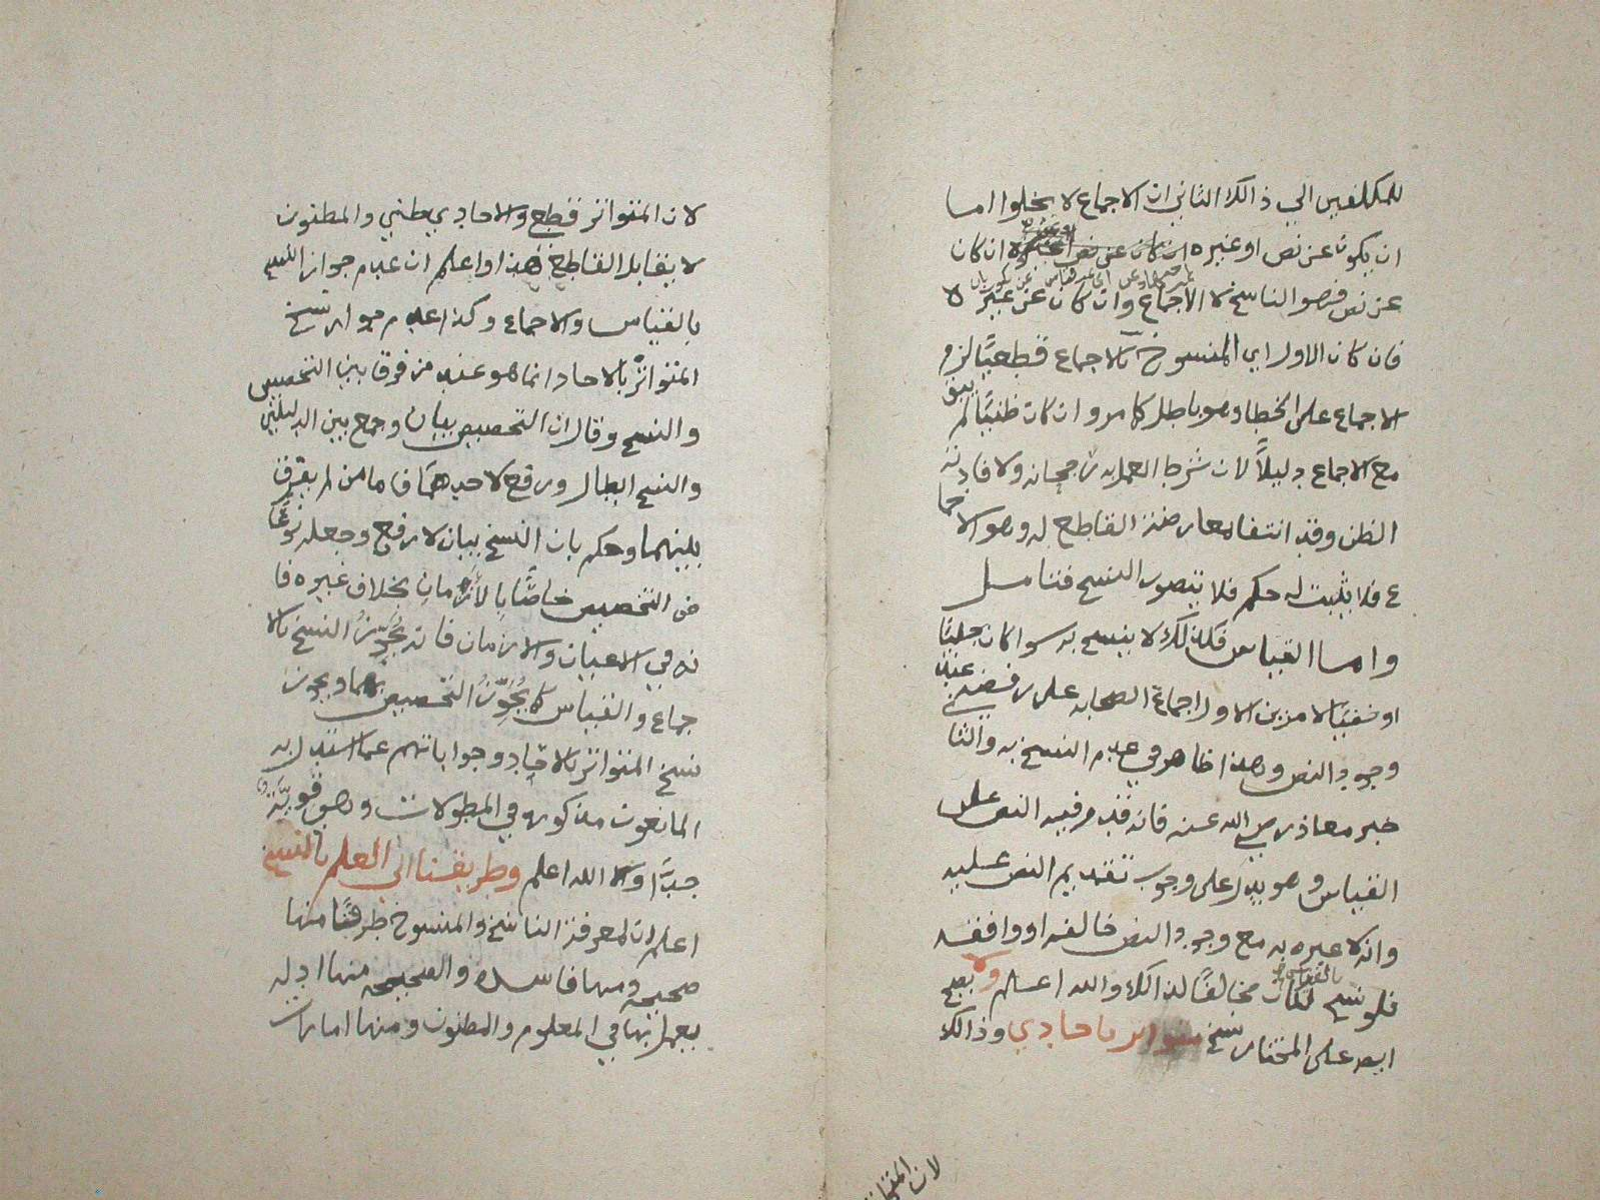 للمكلفين الي ذالك الثاني ان الاجماع لا يخلوا اما
ان يكون عن نص او غيره ان كان
عن نص فهو الناسخ لا الاجماع وان كان عن غير لا
فان كان الاول اي المنسوخ بالاجماع قطعيًا لزم
الاجماع على الخطا وهو باطل كما مر وان كان ظنيًا لم يبق
مع الاجماع دليلاً لان شرط العمل به رجحانه ولافادته
الظن وقد انتفا بمعارضة القاطع له وهو الاجما
ع فلا يثبت له حكم فلا يتصور النسخ فتامل
واما القياس فكذلك لا ينسخ به سوا كان جليًا
او خفيًا لامرين الاول اجماع الصحابه على رفضه عند
وجود النص وهذا ظاهر في عدم النسخ به والثا
خبر معاذ رضي الله عنه فانه قدم فيه النص على
القياس وهو يدل على وجوب تقديم النص عليه
وانه لا عبره به مع وجود النص خالفه او وافقه
فلو نسخ بالقياس لكان مخالفًا لذالك والله اعلم ولا يصح
ايضا على المختار نسخ متواتر باحادي وذالك
لان المتواتر
لان المتواتر قطعي والاحادي ظني والمظنون
لا يقابل القاطع هذا واعلم ان عدم جواز النسخ
بالقياس والاجماع وكذا عدم جواز نسخ
المتواتر بالاحاد انما هو عند من فرق بين التخصيص
والنسخ وقال ان التخصيص بيان وجمع بين الدليلين
والنسخ ابطال ورفع لاحدهما فاما من لم يفرق
بينهما وحكم بان النسخ بيان لا رفع وجعله نوعًا
من التخصيص خاصًا بالأزمان بخلاف غيره فا
نه في الاعيان والازمان فانه يُجَوِّزُ النسخ بالا
جماع والقياس كما يُجَوِّزُ التخصيص بهما ويجوز
نسخ المتواتر بالاحاد وجواباتهم عما استدل به
المانعون مذكوره في المطولات وهي قويَّة
جدًا والله اعلم وطريقنا الي العلم بالنسخ
اعلم ان لمعرفة الناسخ والمنسوخ طرقًا منها
صحيحه ومنها فاسده والصحيحه منها ادله
يعمل بها في المعلوم والمظنون ومنها امارات